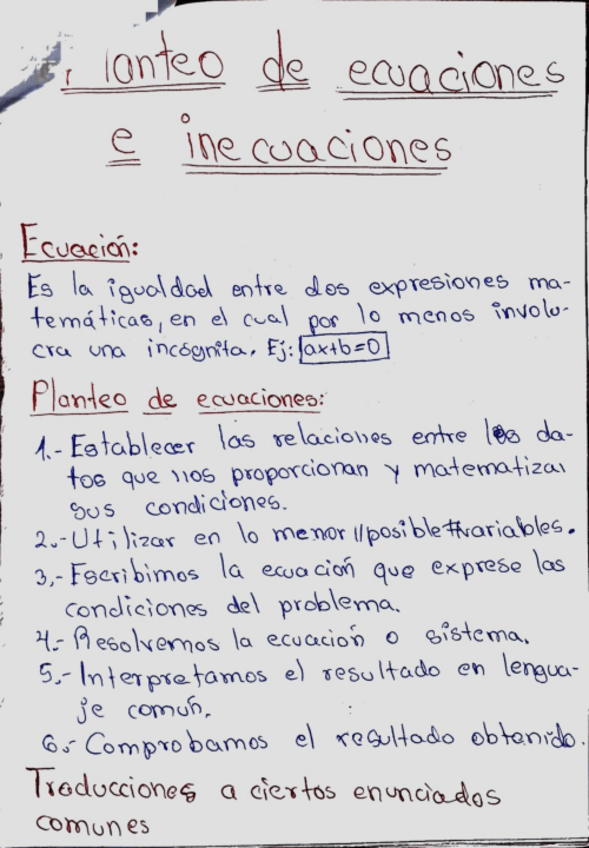 Planteo de ecuaciones
e inecuaciones
Ecuación:
Es la igualdad entre dos expresiones ma-
temáticas, en el cual por lo menos involu-
cra una incógnita. Ej: ax+b=0
Planteo de ecuaciones:
1.- Establecer las relaciones entre los da-
tos que nos proporcionan y matematizar
sus condiciones.
2.- Utilizar en lo menor // posible # variables.
3.- Escribimos la ecuación que exprese las
condiciones del problema.
4.- Resolvemos la ecuación o sistema.
5.- Interpretamos el resultado en lengua-
je común.
6.- Comprobamos el resultado obtenido.
Traducciones a ciertos enunciados
comunes